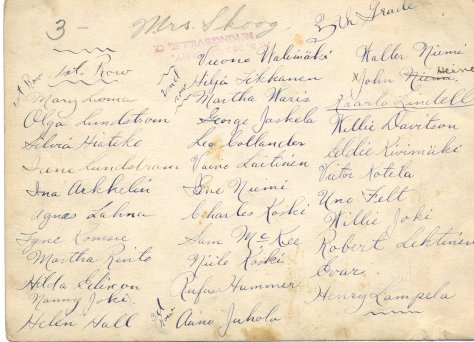 3 -
Mrs. Skoog
3th Grade
1st Row
1st Row
Mary Luoma
Olga Lundstrom
Silvia Hiatike
Irene Lundstrum
Ina Arkhelin
Agnes Lahna
Tyne Romsie
Martha Rinto
Hilda
Nanny Joki
Helen Hall
2nd row
Vieono Walimäki
Hilja Sikkanen
Martha Waris
George Jaskela
Leo Collander
Vaino Laitinen
Niemi
Charles Koski
Sam McKee
Niilo Koski
Rufus Hummer
3rd row
Aano Juhola
Walter Niemi
x John Heine
Kaarlo Lindell
Willie Davitson
Eddie Kivimäki
Victor Kotela
Uno Felt
Willie Joki
Robert Lehtinen
Evar
Henry Lampela